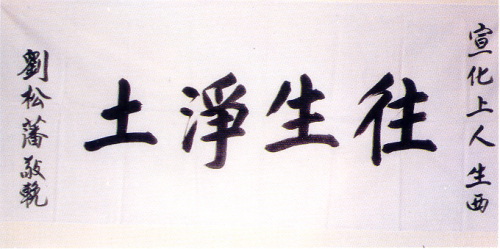 宣化上人生西
往生淨土
劉松藩敬輓